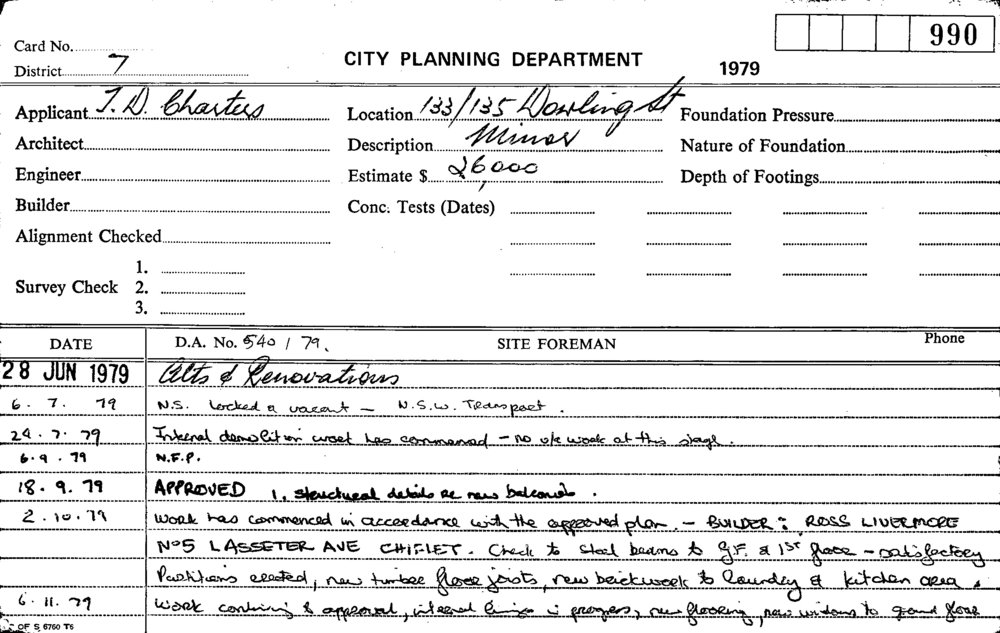 990
Card No.
District 7
CITY PLANNING DEPARTMENT
1979
Applicant J. D. Charters
Location 133/135 Dowling St
Foundation Pressure
Architect
Description Minor
Nature of Foundation
Engineer
Estimate $ 26,000
Depth of Footings
Builder
Conc. Tests (Dates)
Alignment Checked
Survey Check 1.
2.
3.
DATE D.A. No. 540 / 79. SITE FOREMAN Phone
28 JUN 1979 Alts & Renovations
6. 7. 79 N.S. Locked & vacant – N.S.W. Transport.
24. 7. 79 Internal demolition work has commenced – no work at this stage.
6. 9. 79 N.F.P.
18. 9. 79 APPROVED 1. structural details re new balconies.
2. 10. 79 Work has commenced in accordance with the approved plan. – BUILDER: ROSS LIVERMORE
No 5 LASSETER AVE CHIFLEY. Check to steel beams to G.F. & 1st floor – satisfactory
Partitions erected, new timber floor joists, new brickwork to laundry & kitchen area.
6. 11. 79 Work continuing & approval, internal linings in progress, new flooring, new windows to ground floor
OF S 6760 T6